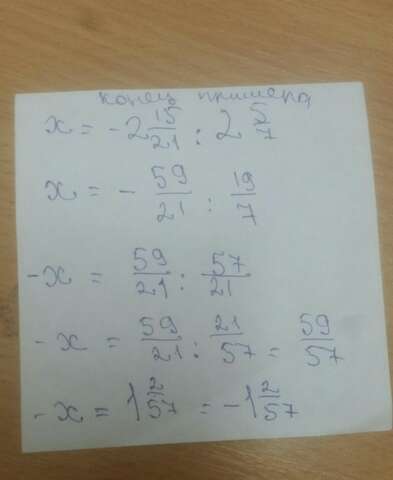 конец примера
x = - 2 15/21 : 2 5/7
x = - 59/21 : 19/7
-x = 59/21 : 57/21
-x = 59/21 : 21/57 = 59/57
-x = 1 2/57 = -1 2/57